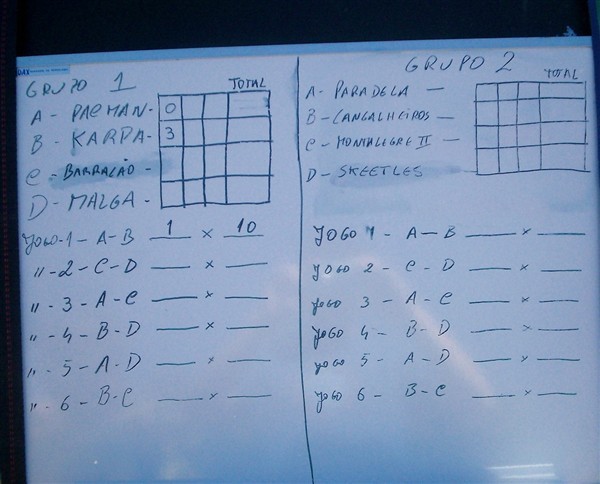 GRUPO 1
TOTAL
A - PACMAN - 0
B - KARPA - 3
C - BARRACÃO -
D - MALGA -
JOGO-1 - A-B 1 x 10
" -2 - C-D ___ x ___
" -3 - A-C ___ x ___
" -4 - B-D ___ x ___
" -5 - A-D ___ x ___
" -6 - B-C ___ x ___
GRUPO 2
TOTAL
A - PARADELA -
B - CANGALHEIROS -
C - MONTALEGRE II -
D - SKEETLES
JOGO 1 - A-B ___ x ___
JOGO 2 - C-D ___ x ___
JOGO 3 - A-C ___ x ___
JOGO 4 - B-D ___ x ___
JOGO 5 - A-D ___ x ___
JOGO 6 - B-C ___ x ___